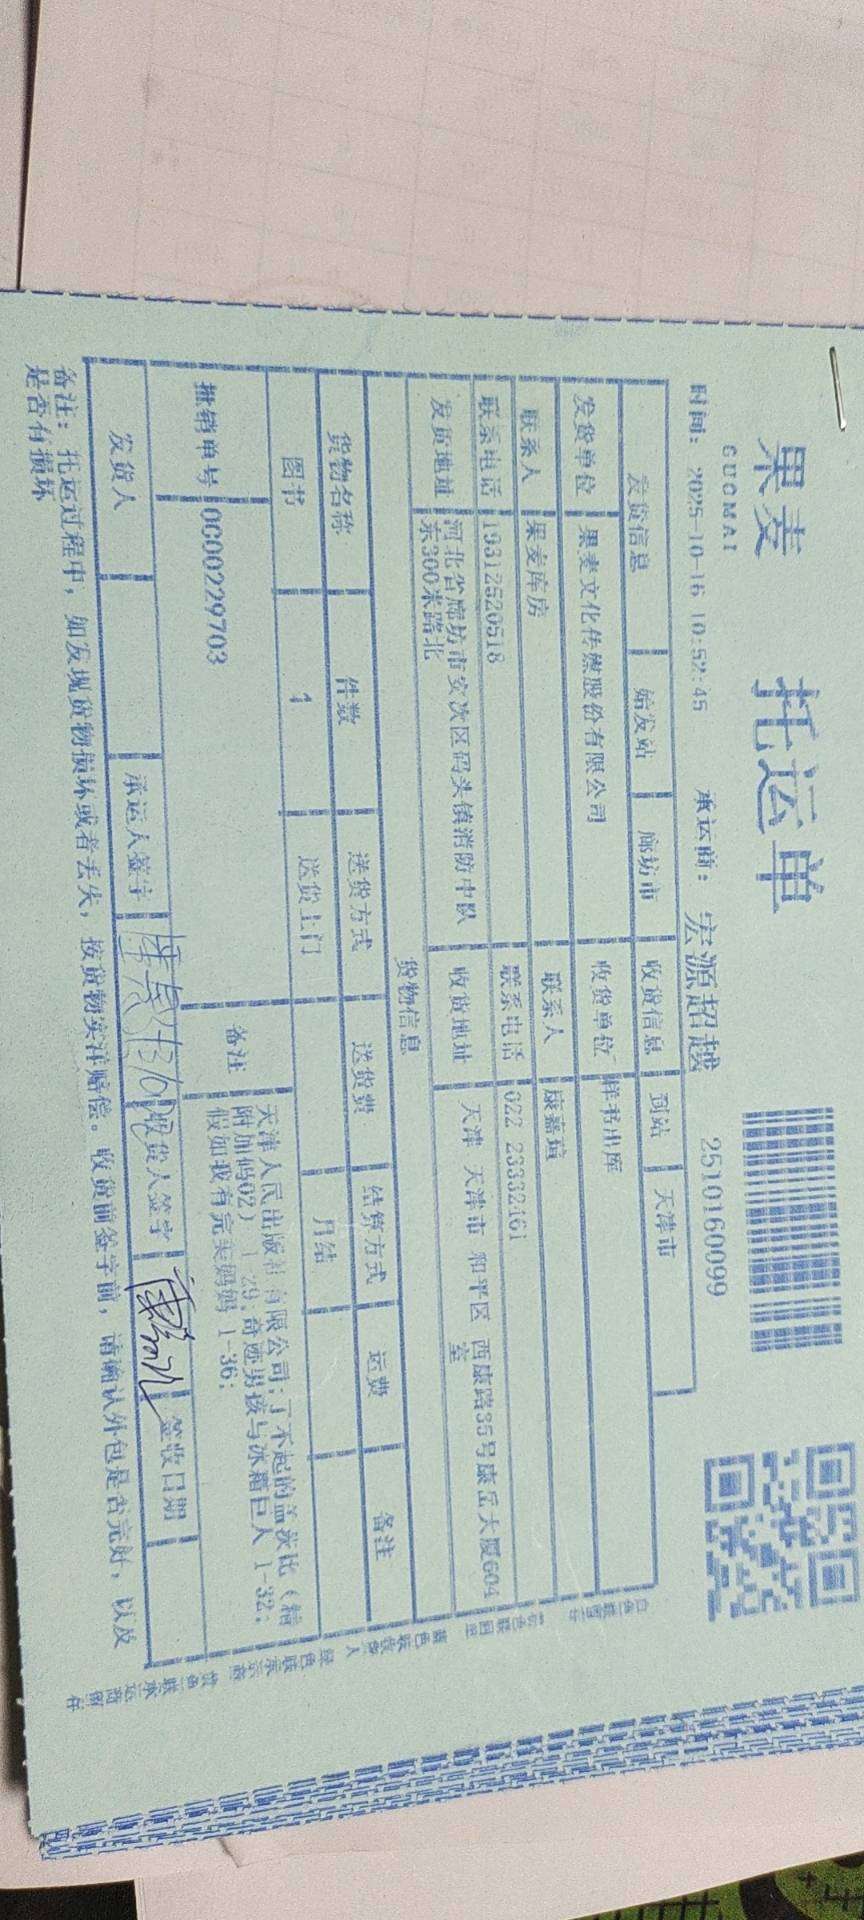 果麦 托运单
GUOMAI
时间：2025-10-16 10:52:45 承运商：宏源超越 2510160099
发货信息 始发站 廊坊市 收货信息 到站 天津市
发货单位 果麦文化传媒股份有限公司 收货单位 样书出库
联系人 果麦库房 联系人 康嘉瑄
联系电话 19312520518 联系电话 022 23332461
发货地址 河北省廊坊市安次区码头镇消防中队东300米路北 收货地址 天津 天津市 和平区 西康路35号康岳大厦604室
货物信息
货物名称 件数 送货方式 送货费 结算方式 运费 备注
图书 4 送货上门 月结
批销单号 0C00229703 备注 天津人民出版社有限公司:了不起的盖茨比（精
附加码02）1-29;奇迹男孩与冰箱巨人 1-32;
假如我有完美妈妈 1-36;
发货人 承运人签字 收货人签字 签收日期
备注：托运过程中，如发现货物损坏或者丢失，按货物实洋赔偿。收货前签字前，请确认外包是否完好，以及
是否有损坏